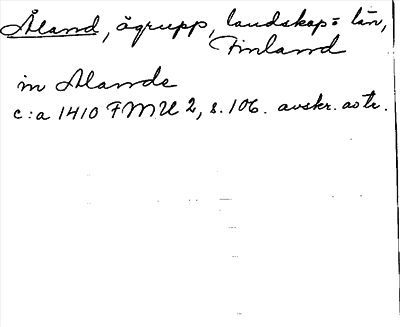 Åland, ögrupp, landskap = län,
Finland
in Alande
c:a 1410 FMU 2, s. 106. avskr.